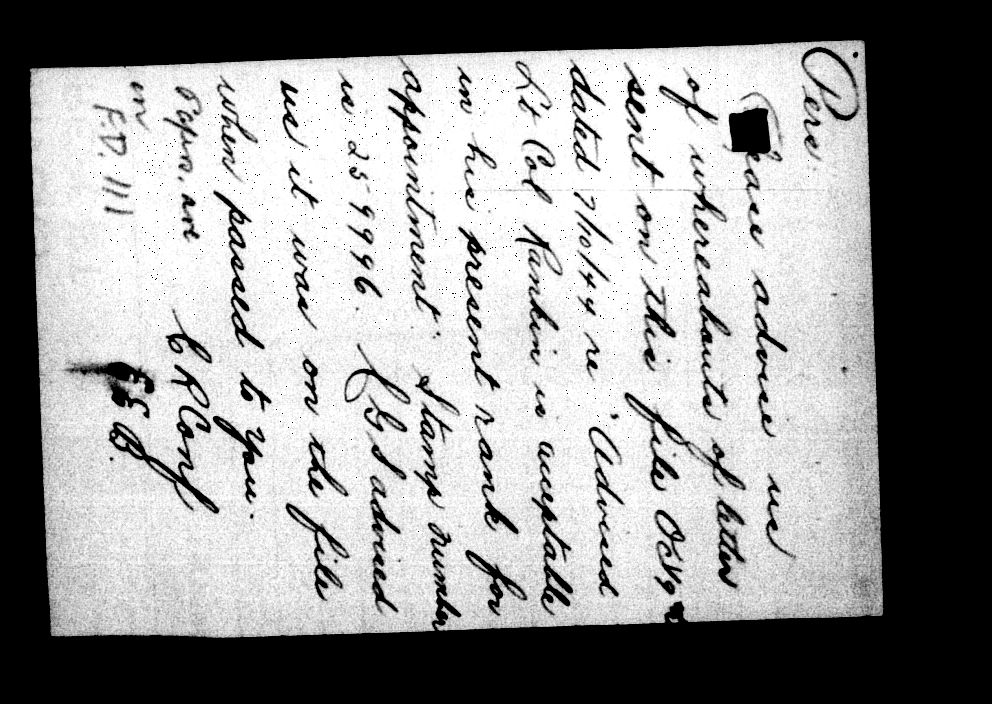 Pers.
ease advise us
of whereabouts of letter
sent on this file
dated 7/10/44 re "Advised
Lt Col Rankin is acceptable
in his present rank for
appointment. Stamp number
is 259996. CGS advised
us it was on the file
when passed to you.
Paprs. are
on
C R Conf
F.D. 111